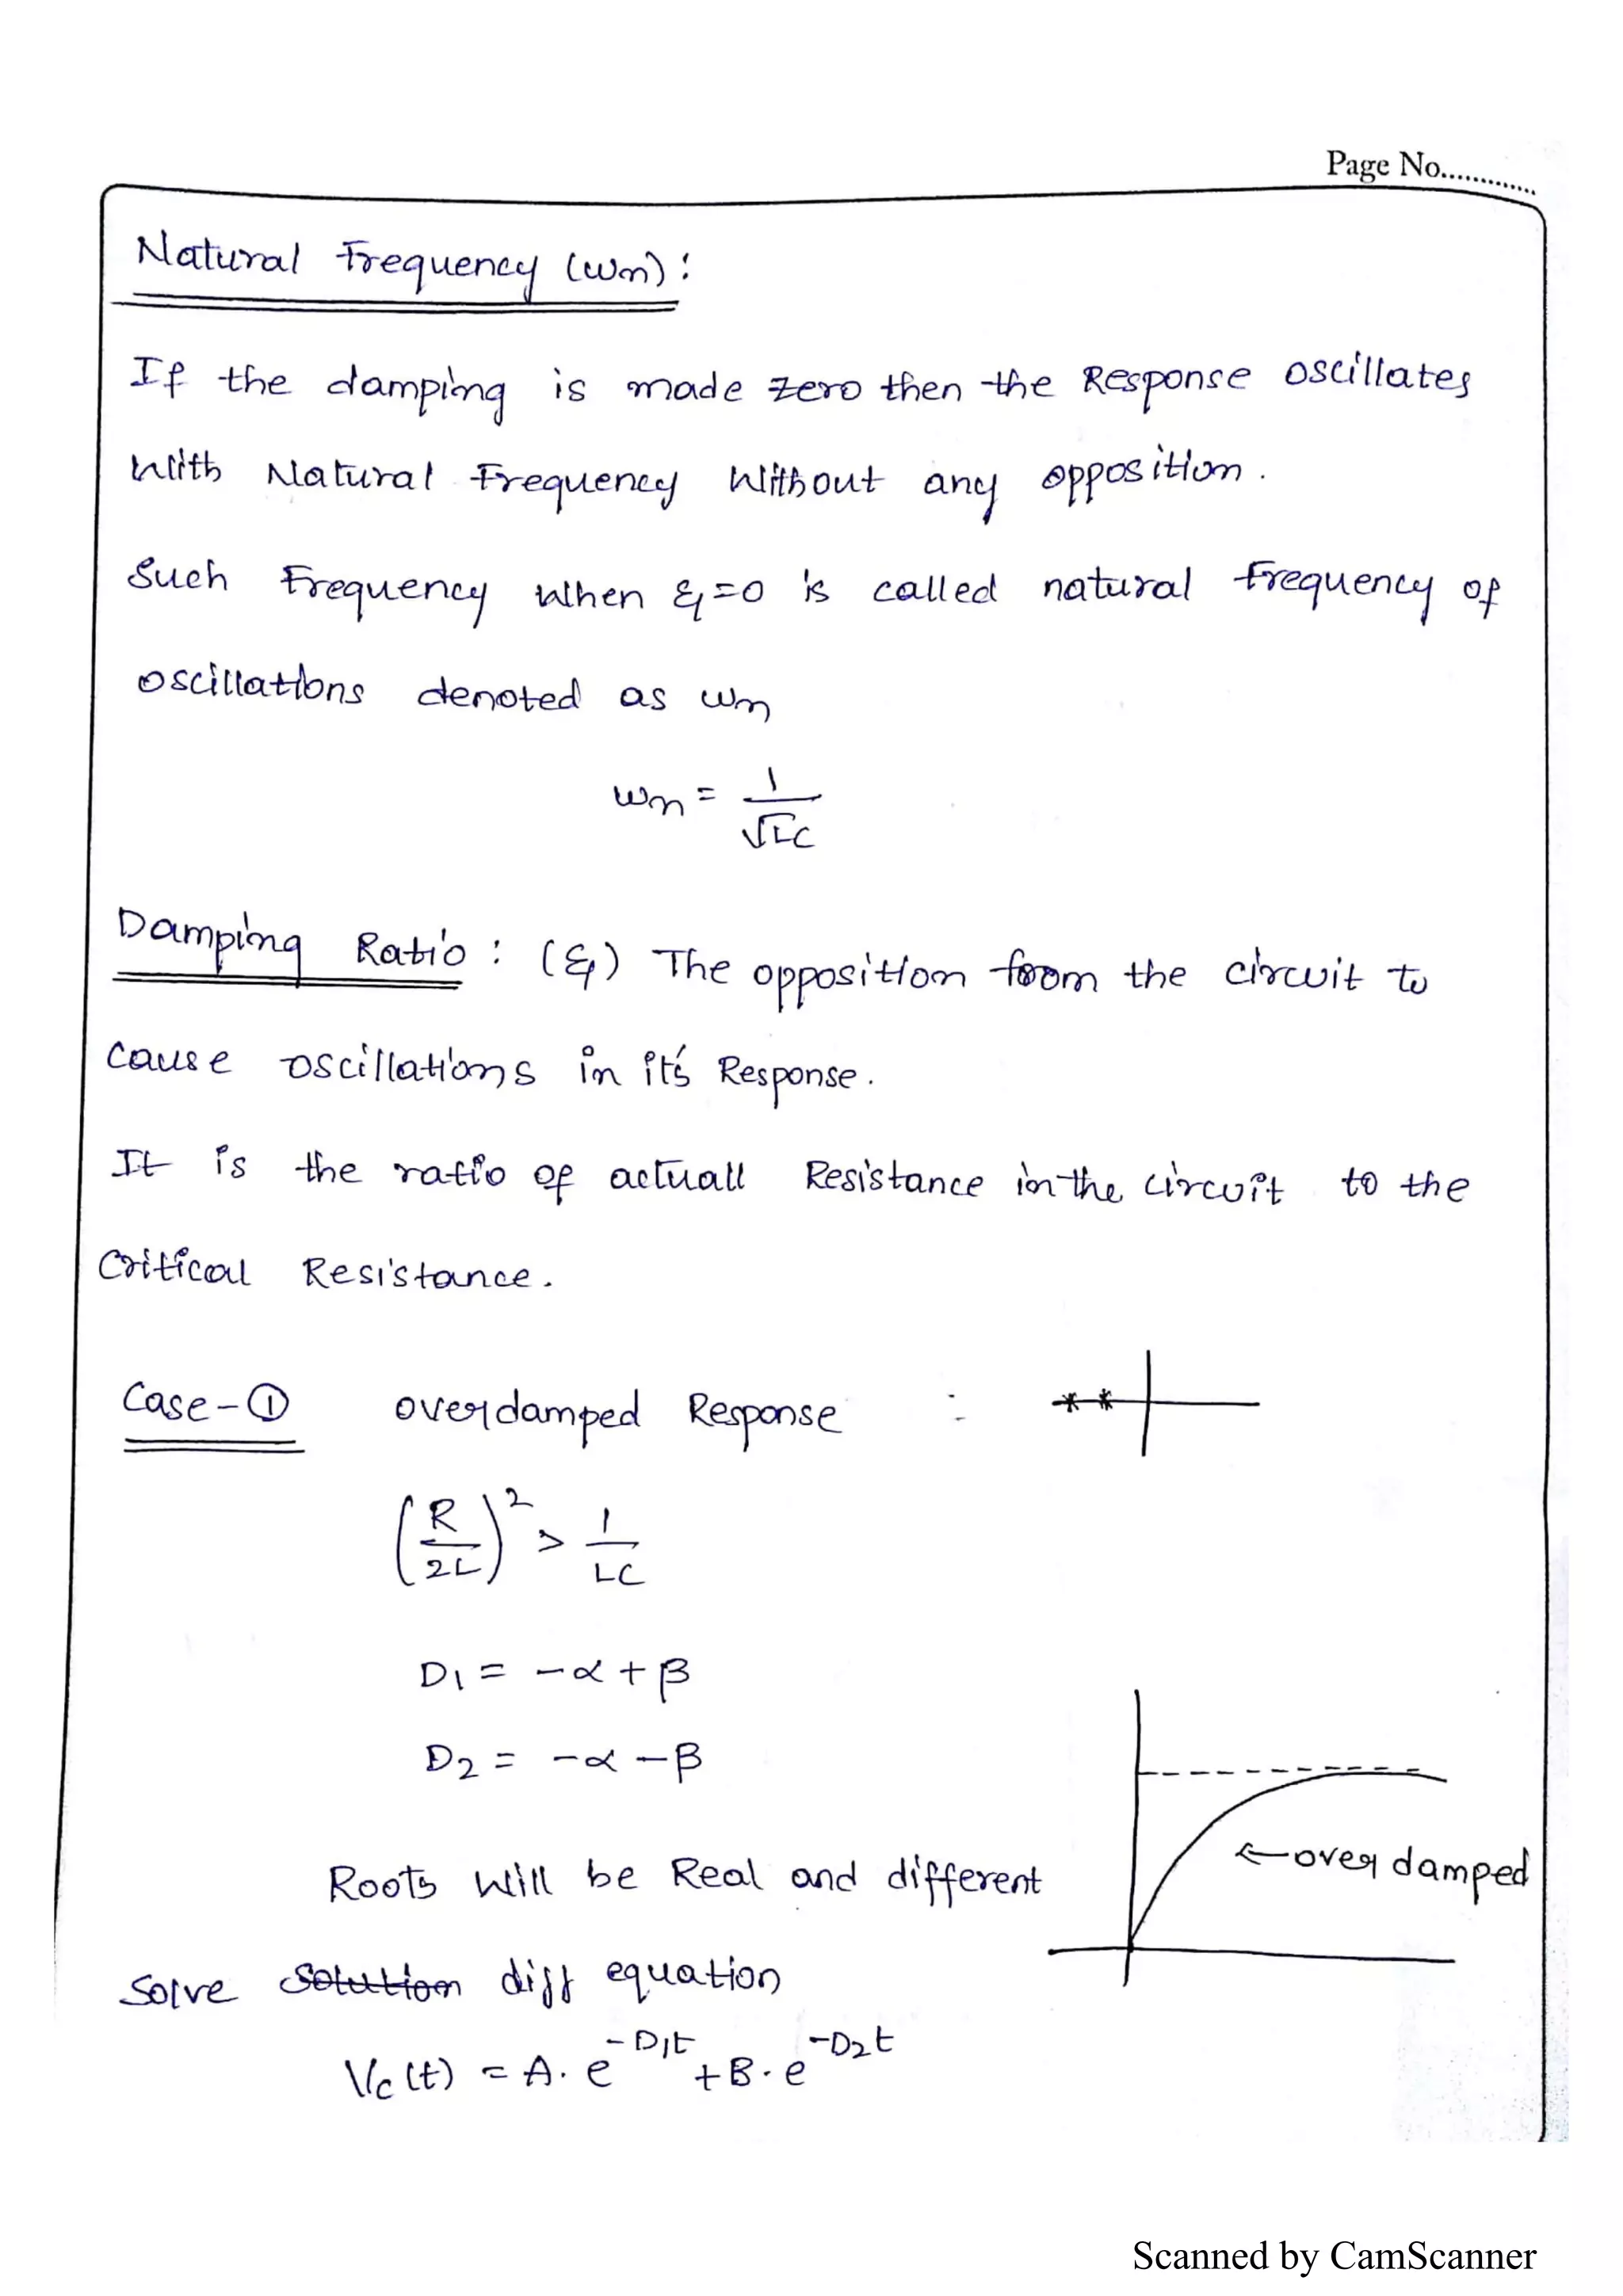 Page No.............
Natural Frequency (ωn) :
If the damping is made zero then the Response oscillates
with Natural Frequency without any opposition.
Such Frequency when ξ=0 is called natural frequency of
oscillations denoted as ωn
ωn = 1/√LC
Damping Ratio : (ξ) The opposition from the circuit to
cause oscillations in it's Response.
It is the ratio of actuall Resistance in the circuit to the
Critical Resistance.
Case-① overdamped Response :-
(R/2L)² > 1/LC
D1 = -α+β
D2 = -α-β
Roots will be Real and different
← over damped
Solve solution diff equation
Vc(t) = A. e^-D1t + B. e^-D2t
Scanned by CamScanner